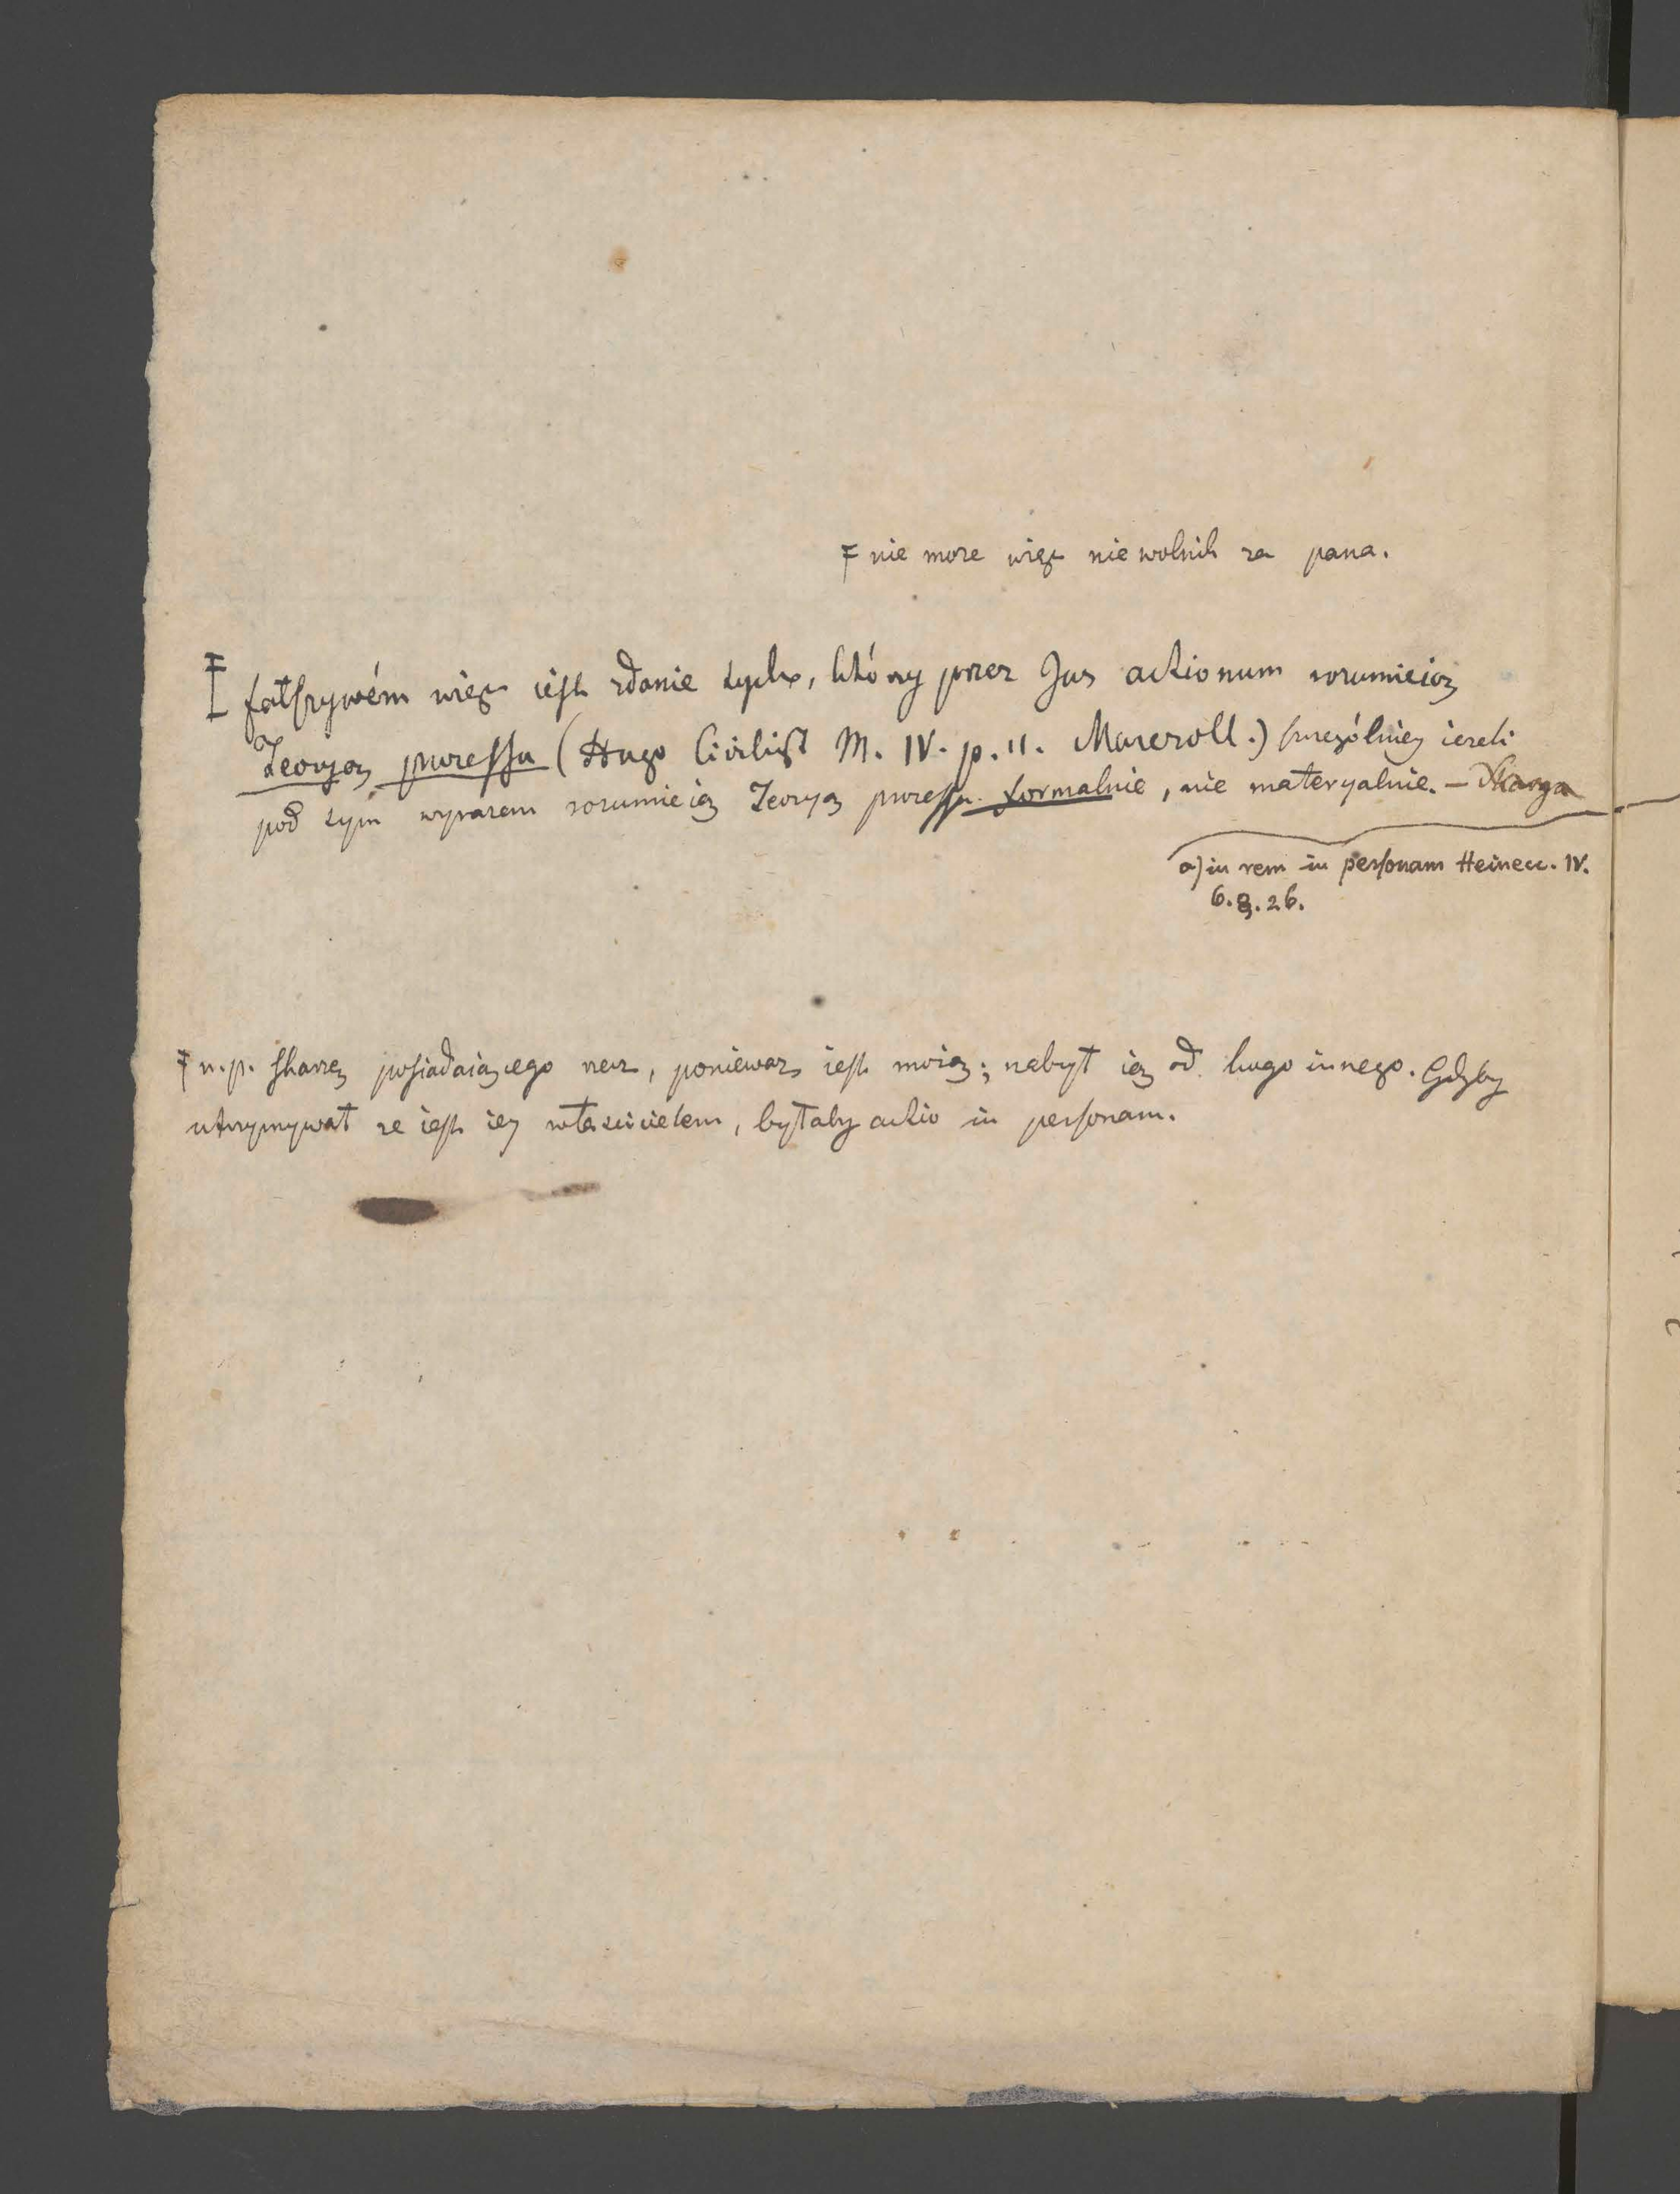 F nie może więc niewolnik za pana.
fałszywém więc iest zdanie tych, którzy przez Jus actionum rozumieią
Teoryą processu (Hugo Civilist M. IV. p. 11. Marezoll.) szczególniey ieżeli
pod tym wyrazem rozumieią Teoryą processu formalnie, nie materyalnie. – Skarga
a) in rem in personam Heinecc. IV.
6. §. 26.
F n.p. skarżę posiadaiącego rzecz, ponieważ iest moią; nabył ią od kogo innego. Gdyby
utrzymywał że iest iey właścicielem, byłaby actio in personam.